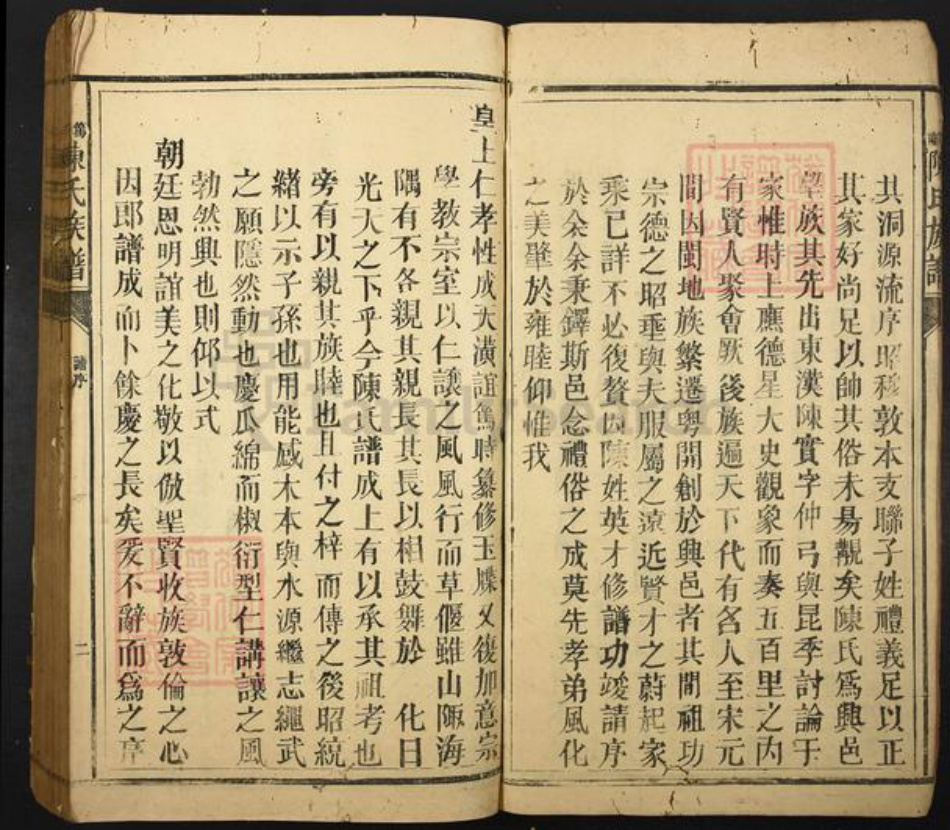 陳氏族譜
其洞源流序昭穆敦本支聯子姓禮義足以正
其家好尚足以帥其俗未易覯矣陳氏爲興邑
望族其先出東漢陳實字仲弓與昆季討論于
家惟時上應德星大史觀象而奏五百里之內
有賢人聚會厥後族遍天下代有名人至宋元
間因閩地族繁遷粵開創於興邑者其間祖功
宗德之昭垂與夫服屬之遠近賢才之蔚起家
乘已詳不必復贅因陳姓英才修譜功竣請序
於余余秉鐸斯邑念禮俗之成莫先孝弟風化
之美肇於雍睦仰惟我
皇上仁孝性成大潢誼篤時纂修玉牒又復加意宗
學教宗室以仁讓之風風行而草偃雖山陬海
隅有不各親其親長其長以相鼓舞於 化日
光大之下乎今陳氏譜成上有以承其祖考也
旁有以親其族睦也且付之梓而傳之後昭統
緒以示子孫也用能感木本與水源繼志繩武
之願隱然動也慶瓜綿而椒衍型仁講讓之風
勃然興也則仰以式
朝廷恩明誼美之化敬以倣聖賢收族敦倫之心
因郎譜成而卜餘慶之長矣爰不辭而爲之序
陳氏族譜
譜序
二
FamilySearch